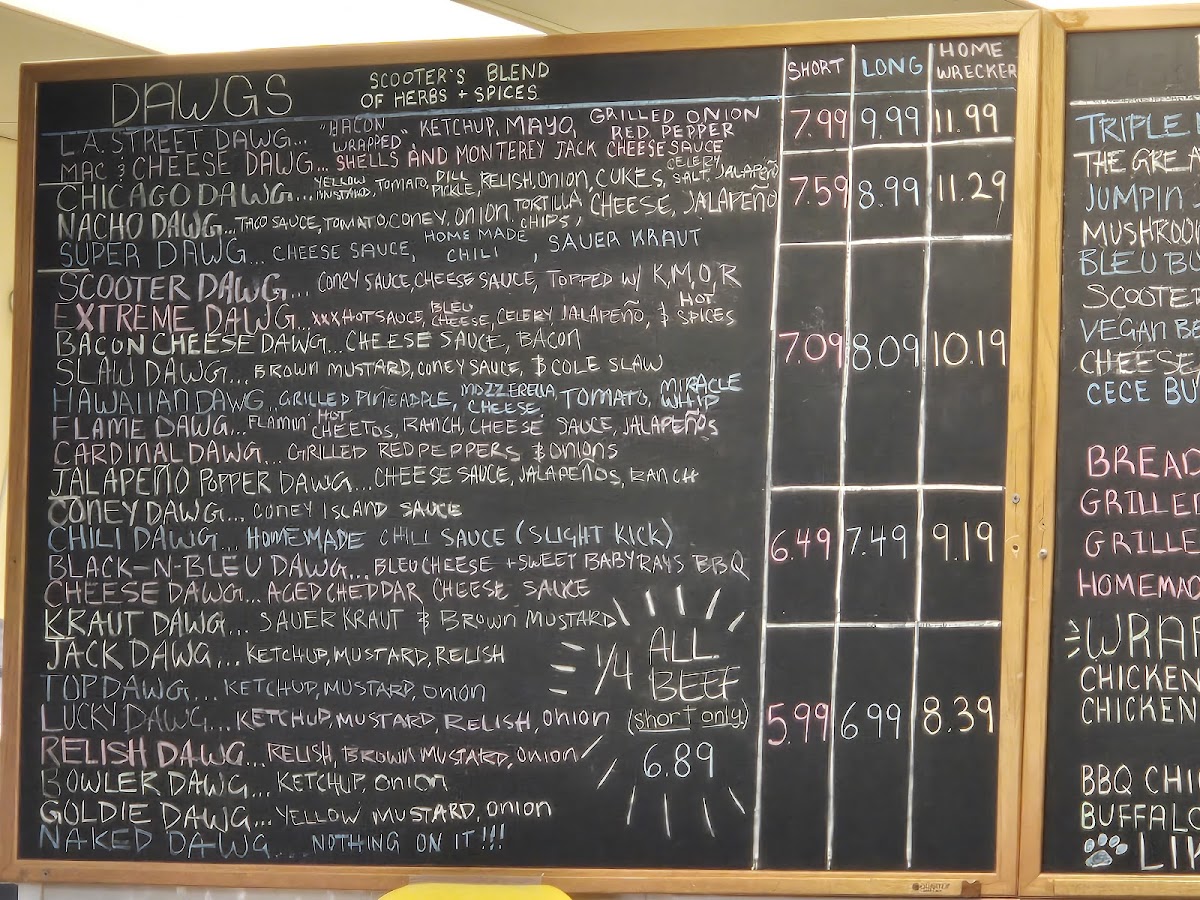 DAWGS SCOOTER'S BLEND OF HERBS + SPICES SHORT LONG HOME WRECKER
L.A. STREET DAWG... "BACON WRAPPED", KETCHUP, MAYO, GRILLED ONION RED PEPPER 7.99 9.99 11.99
MAC & CHEESE DAWG... SHELLS AND MONTEREY JACK CHEESE SAUCE
CHICAGO DAWG... YELLOW MUSTARD, TOMATO, DILL PICKLE, RELISH, ONION, CUKES, CELERY SALT, JALAPEÑO 7.59 8.99 11.29
NACHO DAWG... TACO SAUCE, TOMATO, CONEY, ONION, TORTILLA CHIPS, CHEESE, JALAPEÑO
SUPER DAWG... CHEESE SAUCE, HOME MADE CHILI, SAUER KRAUT
SCOOTER DAWG... CONEY SAUCE, CHEESE SAUCE, TOPPED W/ K,M,O,R
EXTREME DAWG... XXX HOT SAUCE, BLEU CHEESE, CELERY, JALAPEÑO, & HOT SPICES
BACON CHEESE DAWG... CHEESE SAUCE, BACON 7.09 8.09 10.19
SLAW DAWG... BROWN MUSTARD, CONEY SAUCE, & COLE SLAW
HAWAIIAN DAWG... GRILLED PINEAPPLE, MOZZERELLA CHEESE, TOMATO, MIRACLE WHIP
FLAME DAWG... FLAMIN' HOT CHEETOS, RANCH, CHEESE SAUCE, JALAPEÑOS
CARDINAL DAWG... GRILLED RED PEPPERS & ONIONS
JALAPEÑO POPPER DAWG... CHEESE SAUCE, JALAPEÑOS, RANCH
CONEY DAWG... CONEY ISLAND SAUCE
CHILI DAWG... HOMEMADE CHILI SAUCE (SLIGHT KICK) 6.49 7.49 9.19
BLACK-N-BLEU DAWG... BLEU CHEESE + SWEET BABY RAYS BBQ
CHEESE DAWG... AGED CHEDDAR CHEESE SAUCE
KRAUT DAWG... SAUER KRAUT & BROWN MUSTARD
JACK DAWG... KETCHUP, MUSTARD, RELISH
TOP DAWG... KETCHUP, MUSTARD, ONION
LUCKY DAWG... KETCHUP, MUSTARD, RELISH, ONION 5.99 6.99 8.39
RELISH DAWG... RELISH, BROWN MUSTARD, ONION
BOWLER DAWG... KETCHUP, ONION
GOLDIE DAWG... YELLOW MUSTARD, ONION
NAKED DAWG... NOTHING ON IT!!!
1/4 ALL BEEF
(short only)
6.89
TRIPLE
THE GREA
JUMPIN
MUSHROO
BLEU BU
SCOOTE
VEGAN BE
CHEESE
CECE BU
BREAD
GRILLE
GRILLE
HOMEMAD
WRAP
CHICKEN
CHICKEN
BBQ CHI
BUFFALO
LI